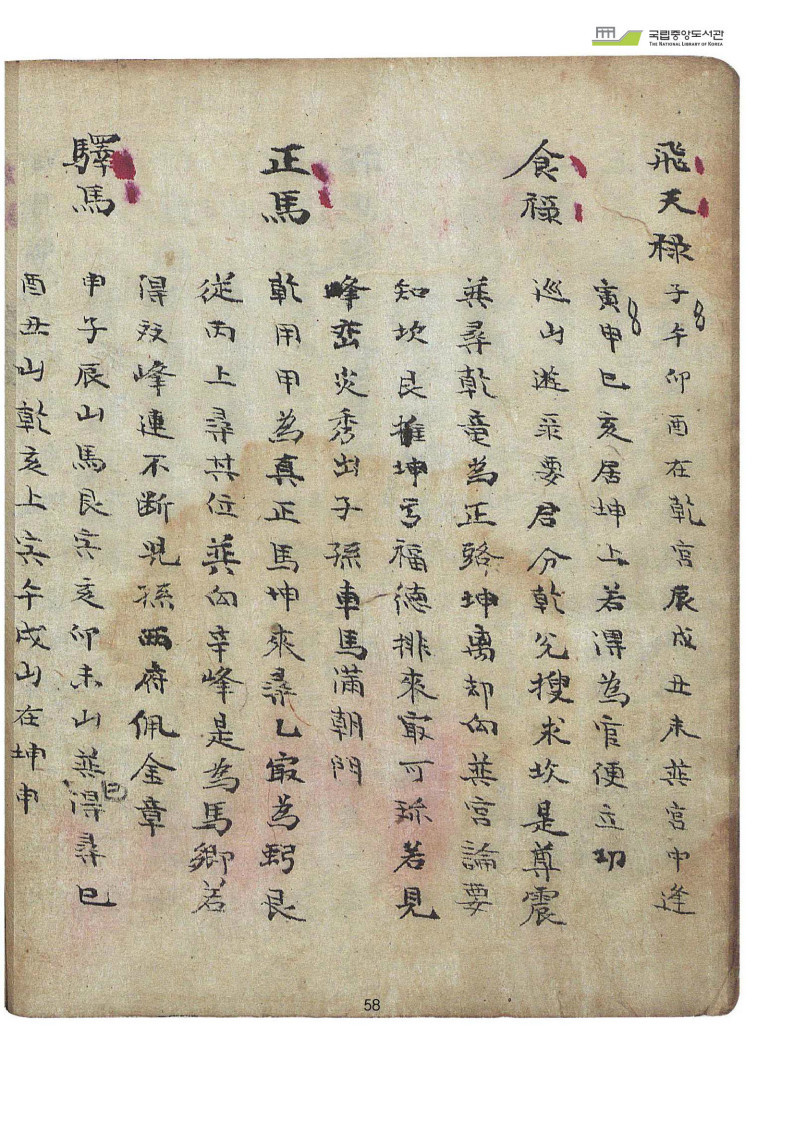 국립중앙도서관
THE NATIONAL LIBRARY OF KOREA
飛天祿 子午卯酉在乾宮辰戌丑未巽宮中逢
寅申巳亥居坤上若得為官便立功
食祿 巡山遊采要君分乾兌搜求坎是尊震
巽尋乾竜為正路坤离却向巽宮論要
知坎艮推坤亥福德排來最可珎若見
峰巒尖秀出子孫車馬滿朝門
正馬 乾用甲為真正馬坤來尋乙最為親艮
從丙上尋其位巽向辛峰是為馬卿若
得双峰連不斷児孫両府佩金章
驛馬 申子辰山馬艮寅亥卯未山巽得尋巳
酉丑山乾亥上寅午戌山在坤申
58